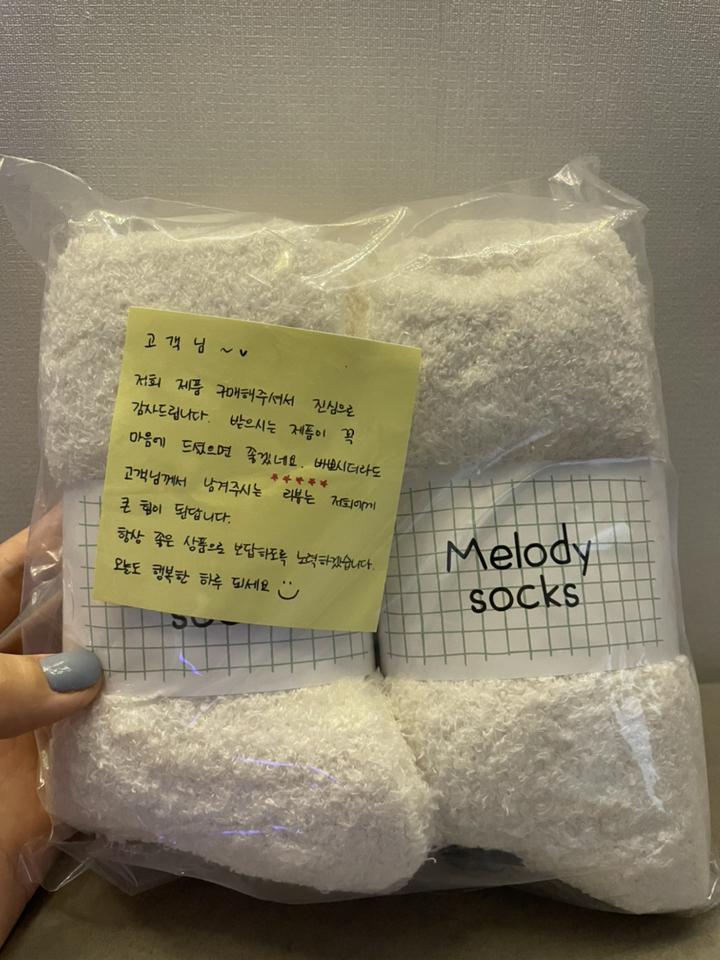 고객님 ~♥
저희 제품 구매해주셔서 진심으로
감사드립니다. 받으시는 제품이 꼭
마음에 드셨으면 좋겠네요. 바쁘시더라도
★★★★★
고객님께서 남겨주시는 리뷰는 저희에게
큰 힘이 된답니다.
항상 좋은 상품으로 보답하도록 노력하겠습니다.
오늘도 행복한 하루 되세요 :)
socks
Melody
socks